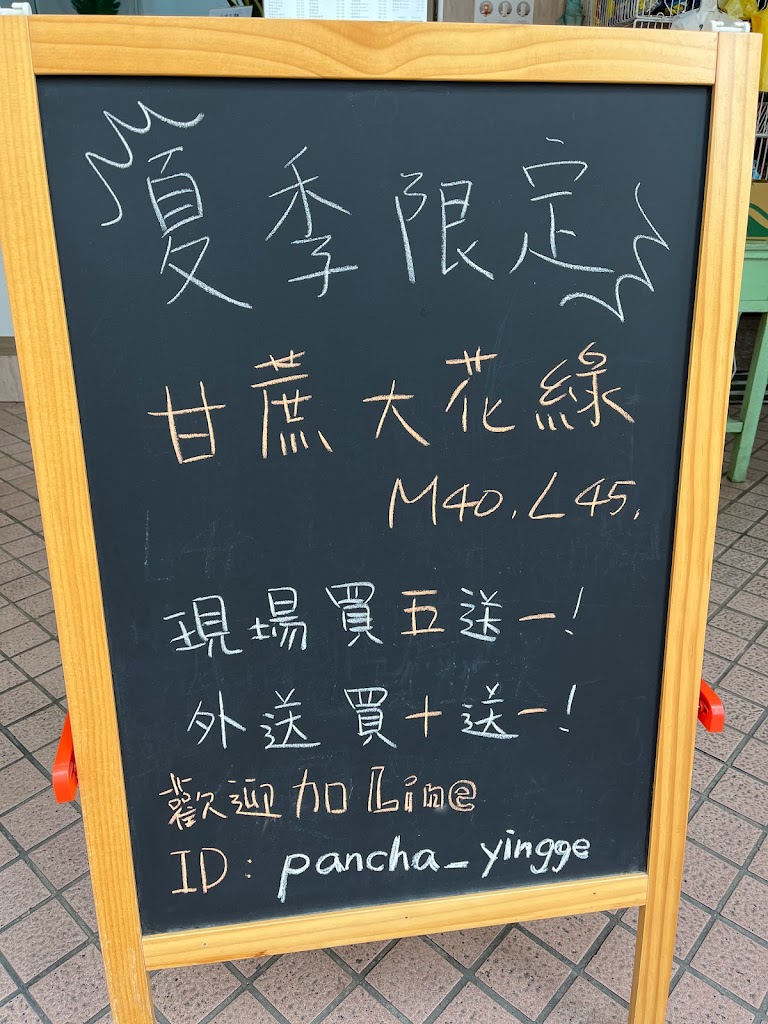 夏季限定
甘蔗大花綠
M40. L45.
現場買五送一!
外送買十送一!
歡迎加Line
ID: pancha_yingge